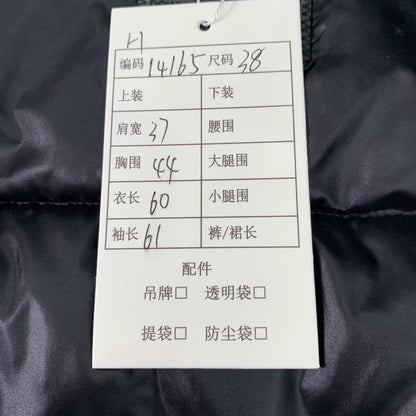 H
编码 14165 尺码 38
上装 下装
肩宽 37 腰围
胸围 44 大腿围
衣长 60 小腿围
袖长 61 裤/裙长
配件
吊牌□ 透明袋□
提袋□ 防尘袋□